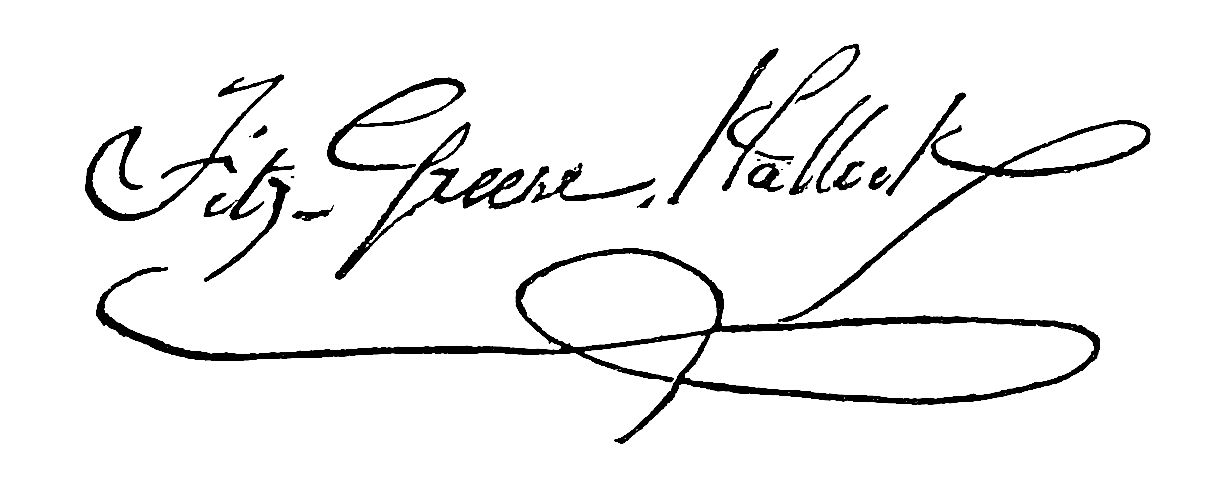 Fitz-Greene Halleck